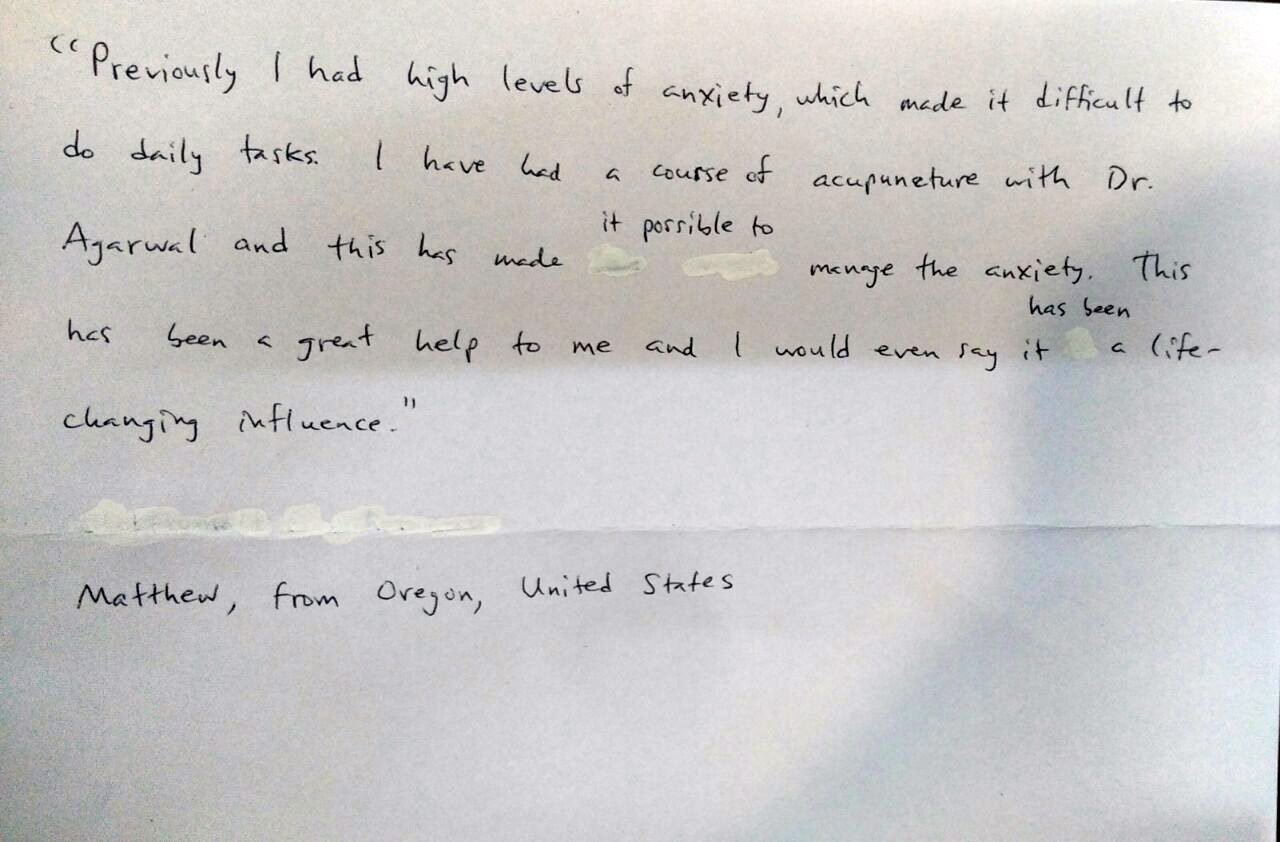 "Previously I had high levels of anxiety, which made it difficult to
do daily tasks. I have had a course of acupuncture with Dr.
it possible to
Agarwal and this has made manage the anxiety. This
has been
has been a great help to me and I would even say it a life-
changing influence."
Matthew, from Oregon, United States